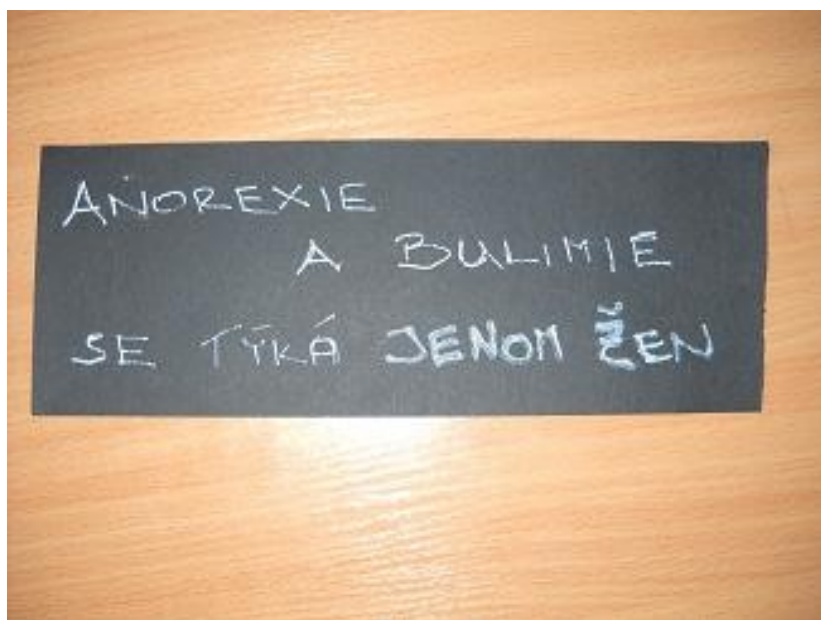 ANOREXIE
A BULIMIE
SE TÝKÁ JENOM ŽEN